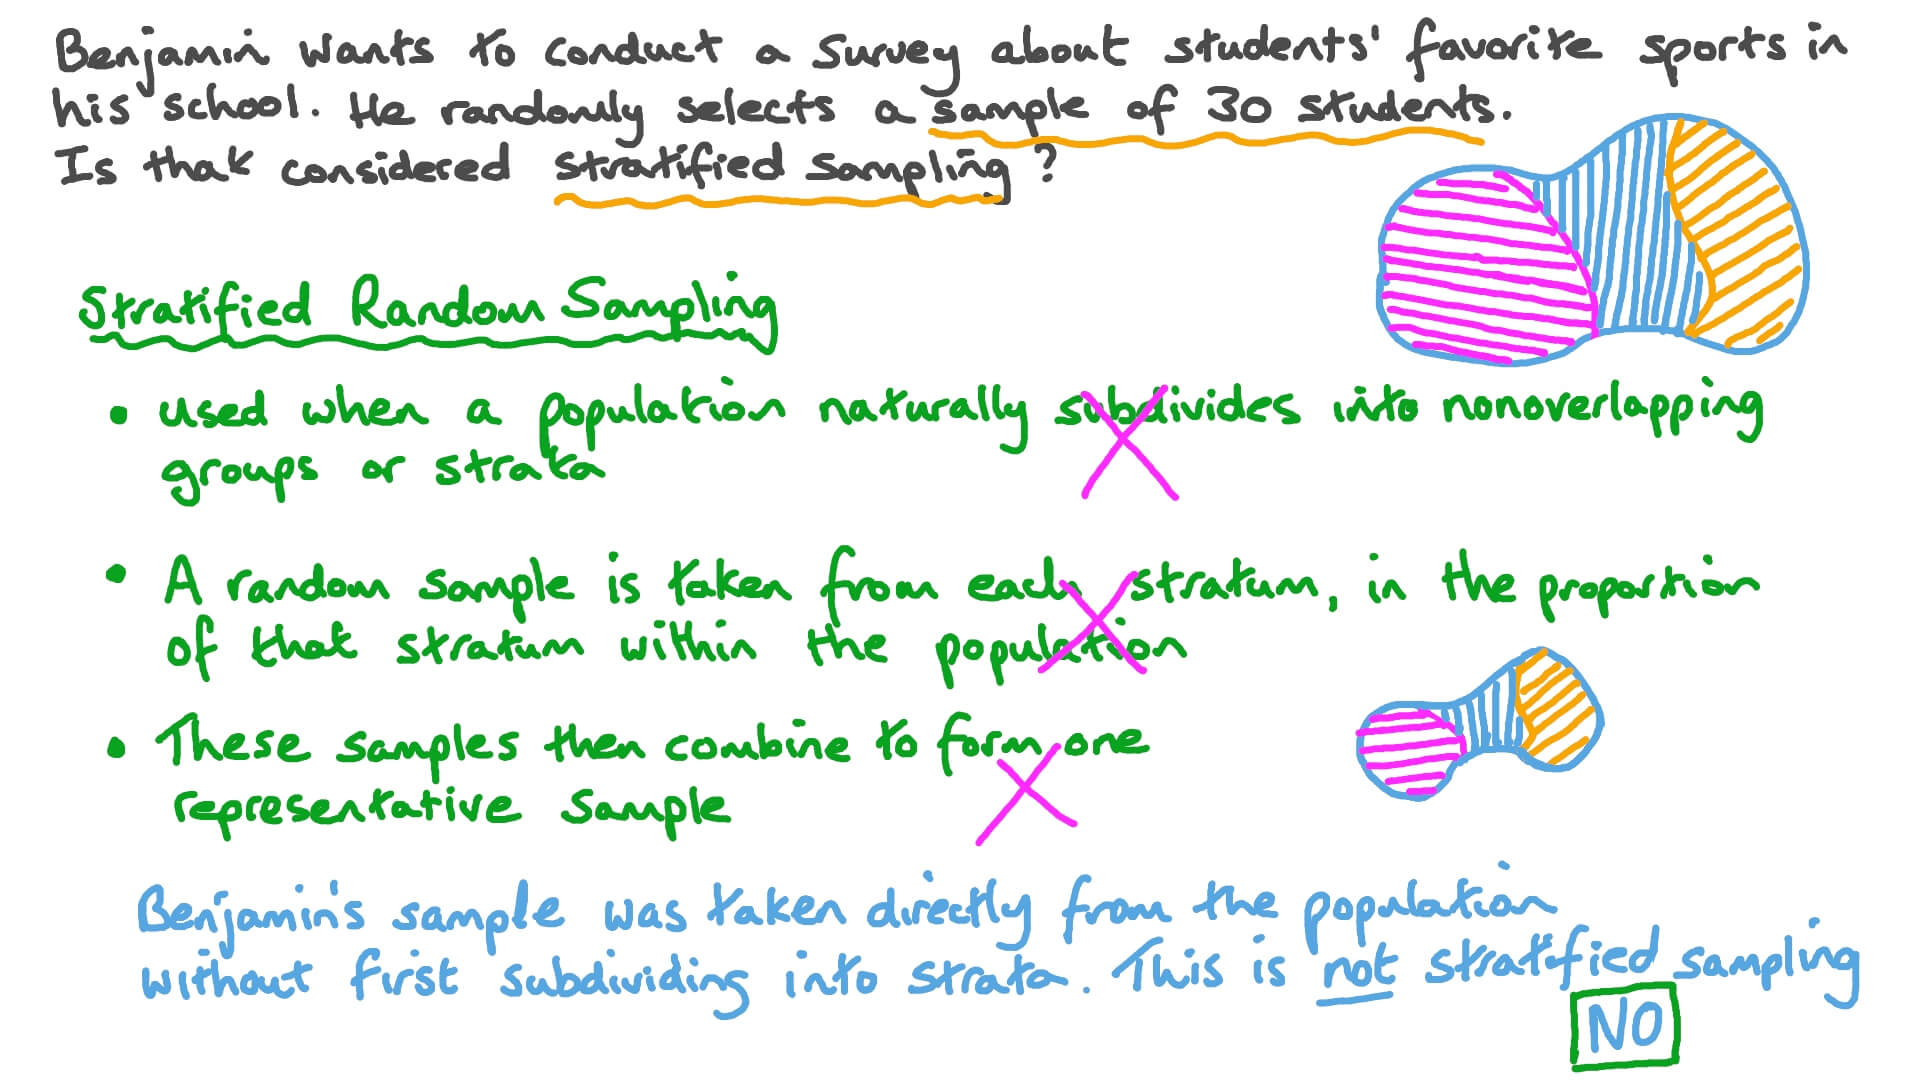 Benjamin wants to conduct a survey about students' favorite sports in
his school. He randomly selects a sample of 30 students.
Is that considered stratified sampling?
Stratified Random Sampling
• used when a population naturally subdivides into nonoverlapping
groups or strata
• A random sample is taken from each stratum, in the proportion
of that stratum within the population
• These samples then combine to form one
representative sample
Benjamin's sample was taken directly from the population
without first subdividing into strata. This is not stratified sampling
NO